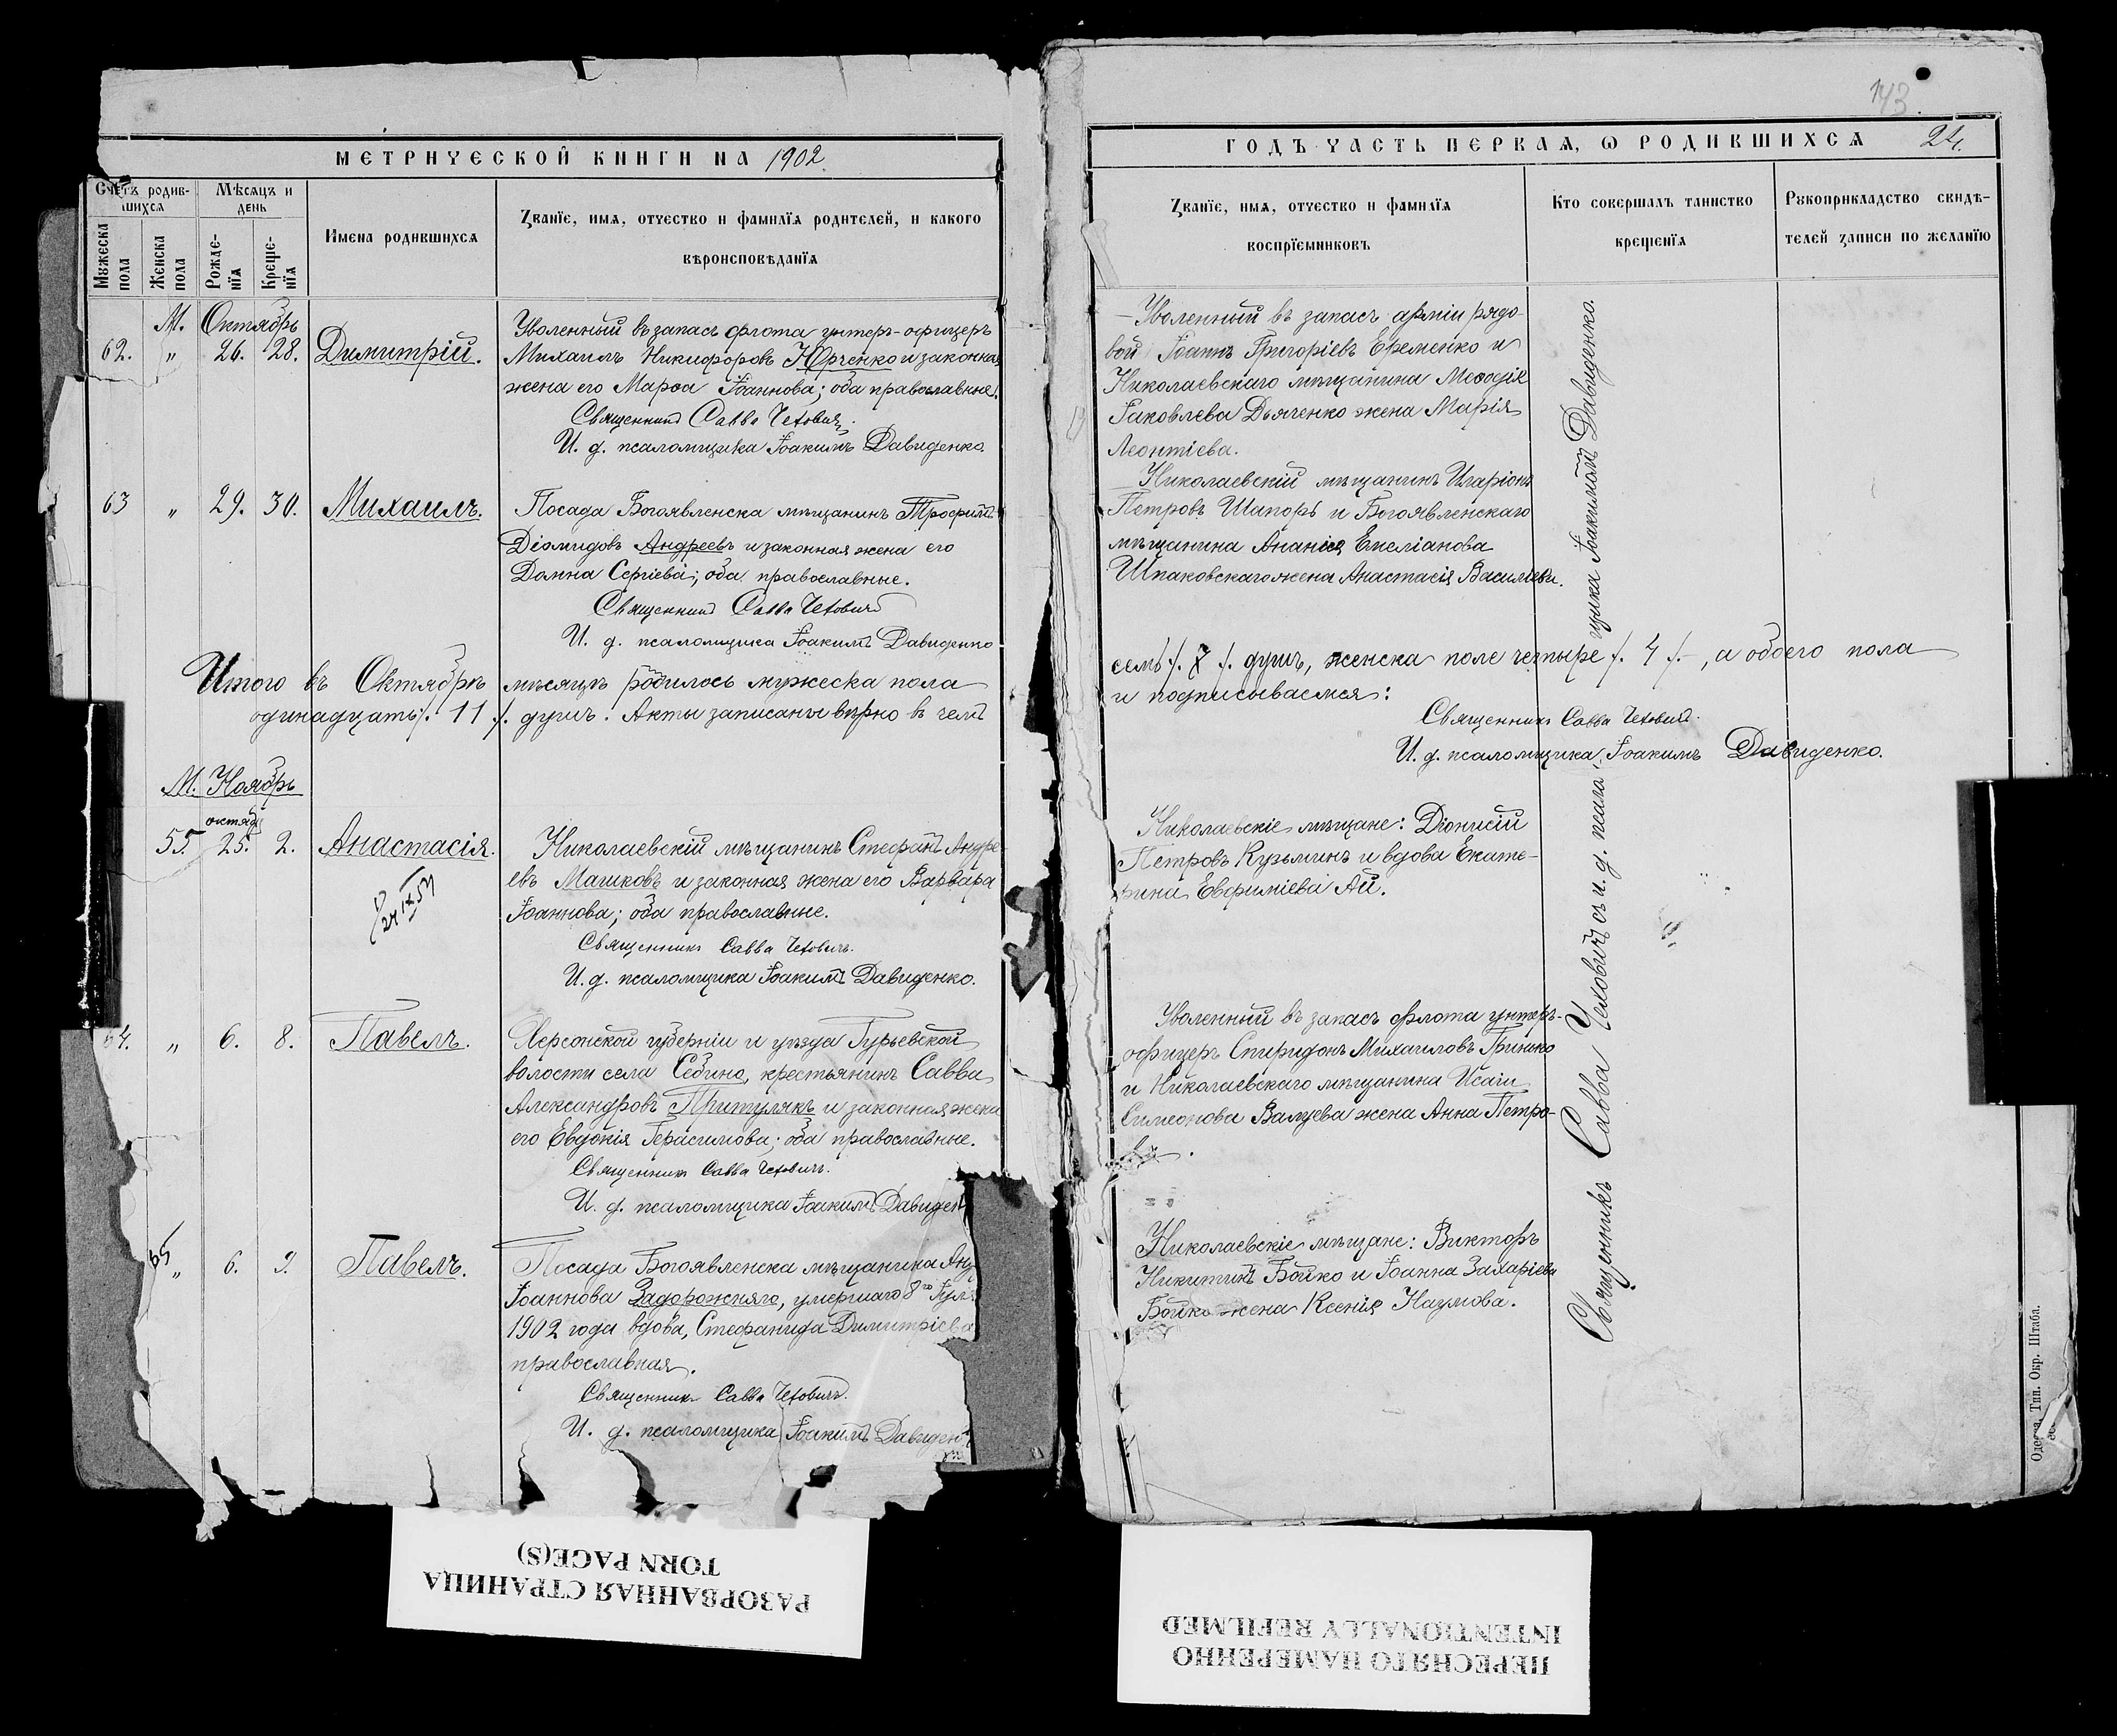 МЕТРИЧЕСКОЙ КНИГИ НА 1902
Счетъ родив-
шихся
Мѣсяцъ и
день
Мужеска
пола
Женска
пола
Рожде-
нїя
Креще-
нїя
Имена родившихся
Званїе, имя, отчество и фамилїя родителей, и какого
вѣроисповѣданїя
М. Октябрь
62. " 26. 28. Димитрій.
Уволенный въ запасъ флота унтеръ-офицеръ
Михаилъ Никифоровъ Юрченко и законная
жена его Марѳа Іоаннова; оба православные.
Священникъ Савва Чеховичъ.
И. д. псаломщика Іоакимъ Давиденко.
63 " 29. 30. Михаилъ.
Посада Богоявленска мѣщанинъ Трофимъ
Діомидовъ Андреевъ и законная жена его
Домна Сергіева; оба православные.
Священникъ Савва Чеховичъ
И. д. псаломщика Іоакимъ Давиденко
Итого въ Октябрѣ мѣсяцѣ родилось мужеска пола
одинадцать /. 11 /. душъ. Акты записаны вѣрно въ чемъ
М. Ноябрь
октяб
55. 25. 2. Анастасія.
Николаевскій мѣщанинъ Стефанъ Андре-
евъ Машковъ и законная жена его Варвара
Іоаннова; оба православные.
Священникъ Савва Чеховичъ.
И. д. псаломщика Іоакимъ Давиденко.
64. " 6. 8. Павелъ.
Херсонской губерніи и уѣзда Гурьевской
волости села Себино, крестьянинъ Савва
Александровъ Притулякъ и законная жена
его Евдокія Герасимова; оба православные.
Священникъ Савва Чеховичъ.
И. д. псаломщика Іоакимъ Давиден
65 " 6. 9. Павелъ.
Посада Богоявленска мѣщанина Анд
Іоаннова Задорожняго, умершаго 8го Іул
1902 года вдова, Стефанида Димитріева
православная.
Священникъ Савва Чеховичъ.
И. д. псаломщика Іоакимъ Давиден
РАЗОРВАННАЯ СТРАНИЦА
TORN PAGE(S)
143.
ГОДЪ ЧАСТЬ ПЕРВАЯ, Ѡ РОДИВШИХСЯ 24.
Званїе, имя, отчество и фамилїя
воспрїемниковъ
Кто совершалъ таинство
крещенїя
Рукоприкладство свидѣ-
телей записи по желанїю
Уволенный въ запасъ арміи рядо-
вой Іоаннъ Григоріевъ Еременко и
Николаевскаго мѣщанина Меѳодія
Іаковлева Дьяченко жена Марія
Леонтіева.
Николаевскій мѣщанинъ Иларіонъ
Петровъ Шапоръ и Богоявленскаго
мѣщанина Ананія Емеліанова
Шпаковскаго жена Анастасія Василіева.
семь /. 7 /. душъ, женска поле четыре /. 4 /. , а обоего пола
и подписываемся:
Священникъ Савва Чеховичъ.
И. д. псаломщика Іоакимъ Давиденко.
Николаевскіе мѣщане: Діонисій
Петровъ Кузьминъ и вдова Екате-
рина Евфиміева Ай.
Уволенный въ запасъ флота унтеръ-
офицеръ Спиридонъ Михаиловъ Гринько
и Николаевскаго мѣщанина Исаіи
Симеонова Валуева жена Анна Петро-
ва.
Николаевскіе мѣщане: Викторъ
Никитинъ Бойко и Іоанна Захаріева
Бойко жена Ксенія Наумова.
Священникъ Савва Чеховичъ съ и. д. псаломщика Іоакимомъ Давиденко.
Одесса, Тип. Окр. Штаба.
ПЕРЕСНЯТО НАМЕРЕННО
INTENTIONALLY REFILMED